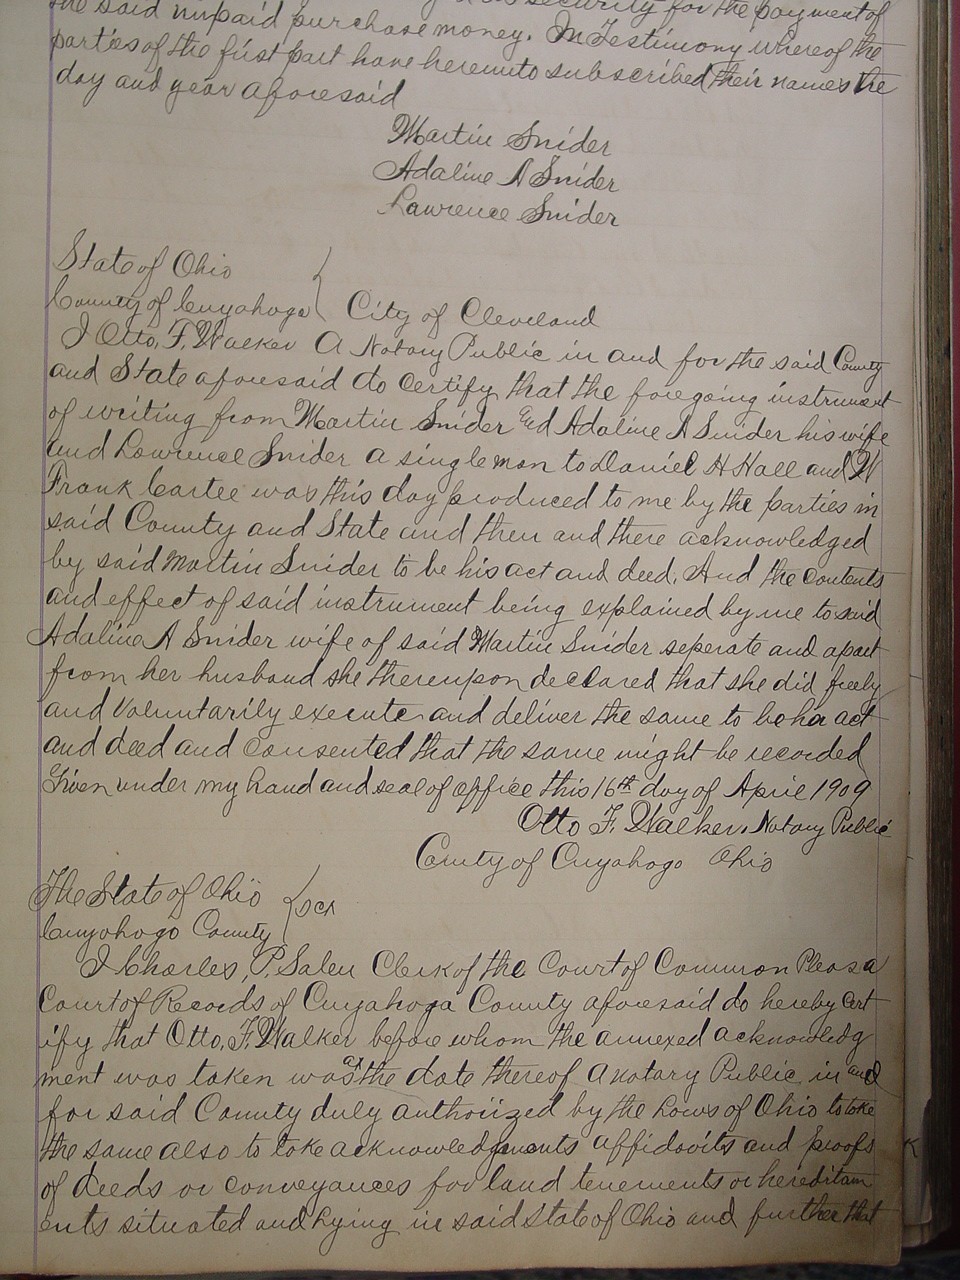 the said unpaid purchase money. In Testimony whereof the
parties of the first part have hereunto subscribed their names the
day and year aforesaid
Martin Snider
Adaline A Snider
Lawrence Snider
State of Ohio
County of Cuyahoga City of Cleveland
I Otto, F, Walker A Notary Public in and for the said County
and State aforesaid do certify that the foregoing instrument
of writing from Martin Snider and Adaline A Snider his wife
and Lawrence Snider a single man to Daniel H Hall and W
Frank Cartee was this day produced to me by the parties in
said County and State and then and there acknowledged
by said Martin Snider to be his act and deed, And the contents
and effect of said instrument being explained by me to said
Adaline A Snider wife of said Martin Snider seperate and apart
from her husband she thereupon declared that she did freely
and voluntarily execute and deliver the same to be her act
and deed and consented that the same might be recorded
Given under my hand and seal of office this 16th day of April 1909
Otto F. Walker. Notary Public
County of Cuyahogo Ohio
The State of Ohio
Cuyahogo County
I Charles, P, Salen Clerk of the Court of Common Pleas a
Court of Records of Cuyahoga County aforesaid do hereby cert
ify that Otto, F, Walker before whom the annexed acknowledg
ment was taken was at the date thereof a Notary Public in and
for said County duly authorized by the Laws of Ohio to take
the same also to take acknowledgments affidavits and proofs
of deeds or conveyances for land tenements or hereditam
ents situated and lying in said State of Ohio and further that